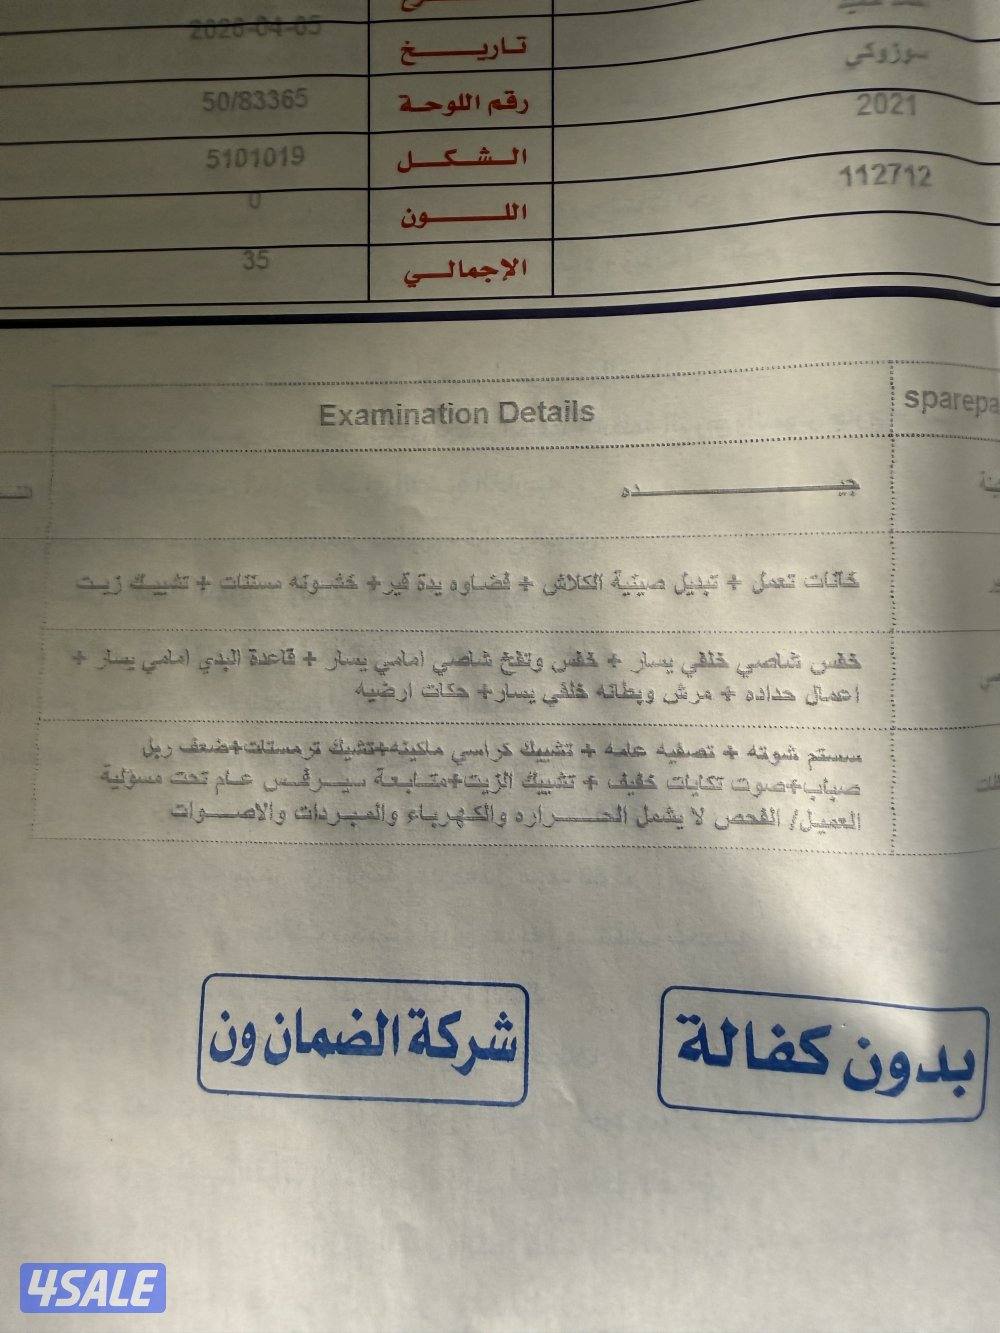 تاريخ 2026-04-05
سوزوكي
رقم اللوحة 50/83365
2021
الشكل 5101019
112712
اللون 0
الإجمالي 35
Examination Details
جيده
خانات تعمل + تبديل صينية الكلاش + فضاوه يدة قير+ خشونه مسننات + تشييك زيت
خفس شاصي خلفي يسار + خفس ونفخ شاصي امامي يسار + قاعدة البدي امامي يسار +
اعمال حداده + مرش وبطانه خلفي يسار+ حكات ارضيه
سستم شوته + تصفيه عامه + تشييك كراسي ماكينه+تشيك ترمستات+ضعف ربل
صباب+صوت تكايات خفيف + تشييك الزيت+متابعة سيرفس عام تحت مسؤلية
العميل/ الفحص لا يشمل الحراره والكهرباء والمبردات والاصوات
بدون كفالة
شركة الضمان ون
4SALE